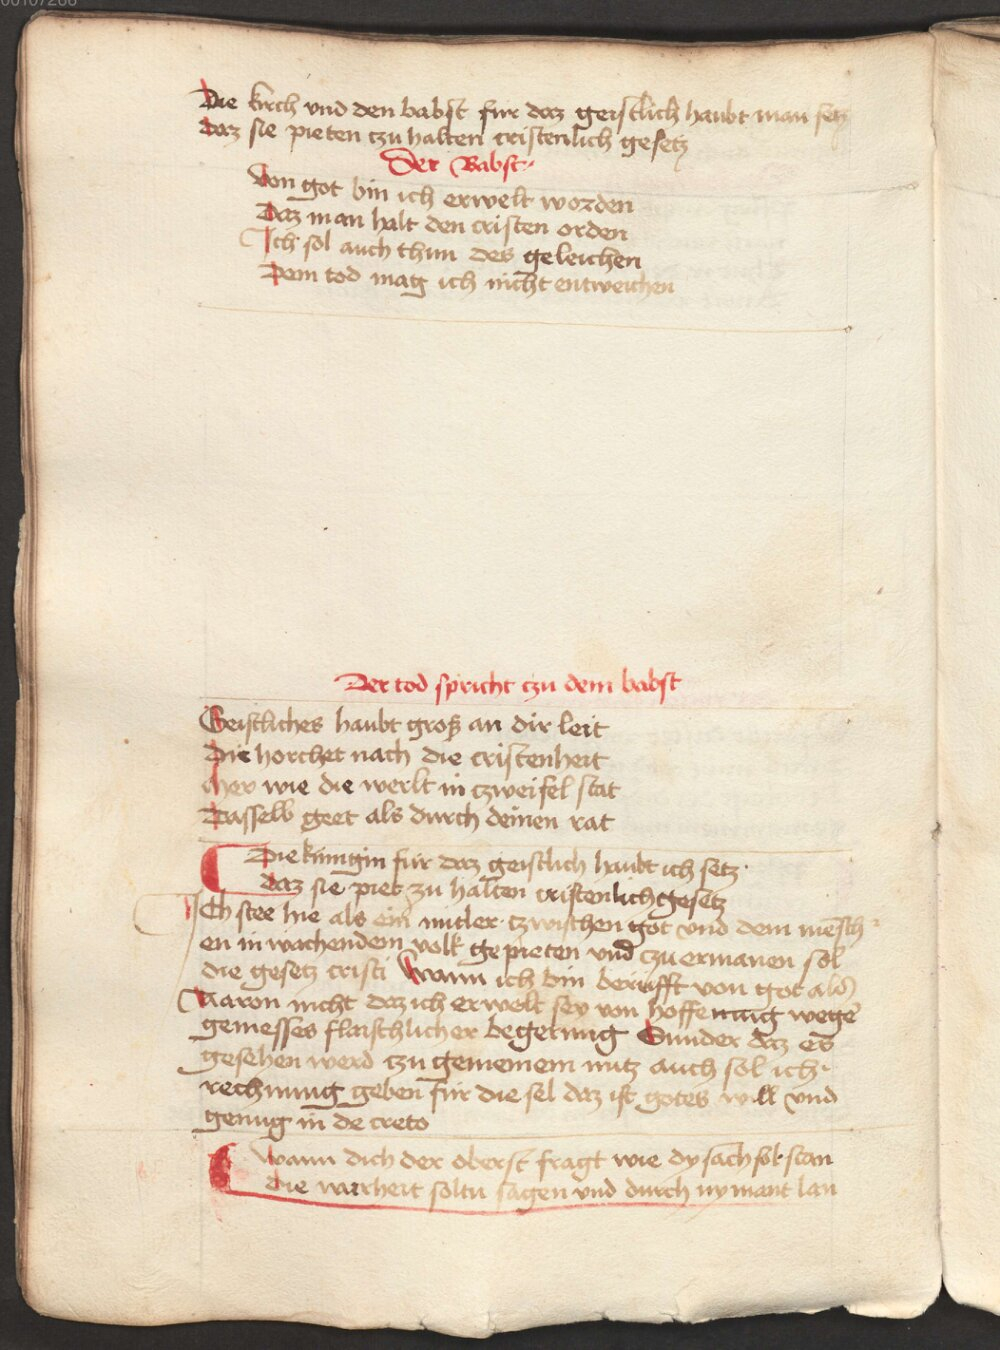 00107206
Die kirch vnd den babst fur daz geistlich haubt man setz
Daz sie pieten czu halten cristenlich gesetz
Der Babst
Von got bin ich erwelt worden
Daz man halt den cristen orden
Ich sol auch thun des geleichen
Dem tod mag ich nicht entweichen
Der tod spricht czu dem babst
Geistliches haubt groß an dir leit
Die horchet nach die cristenheit
wie die werlt in czweifel stat
Dasselb geet als durch deinen rat
Die kunigin fur daz geistlich haubt ich setz
Daz sie piet zu halten cristenlich gesetz
Ich stee hie als ein mitler czwischen got vnd dem mensch
en in wachendem volk gepieten vnd czu ermanen sol
die gesetz cristi Wann ich bin berufft von got als
Aaron nicht daz ich erwelt sey von hoffenung wege
geniesses flaischlicher begerung Sunder daz es
gesehen werd czu gemeinem nutz auch sol ich
rechnung geben fur die sel daz ist gotes will vnd
genug in decreto
Wann dich der oberst fragt wie dy sach sol stan
Die warheit soltu sagen vnd durch nymant lan